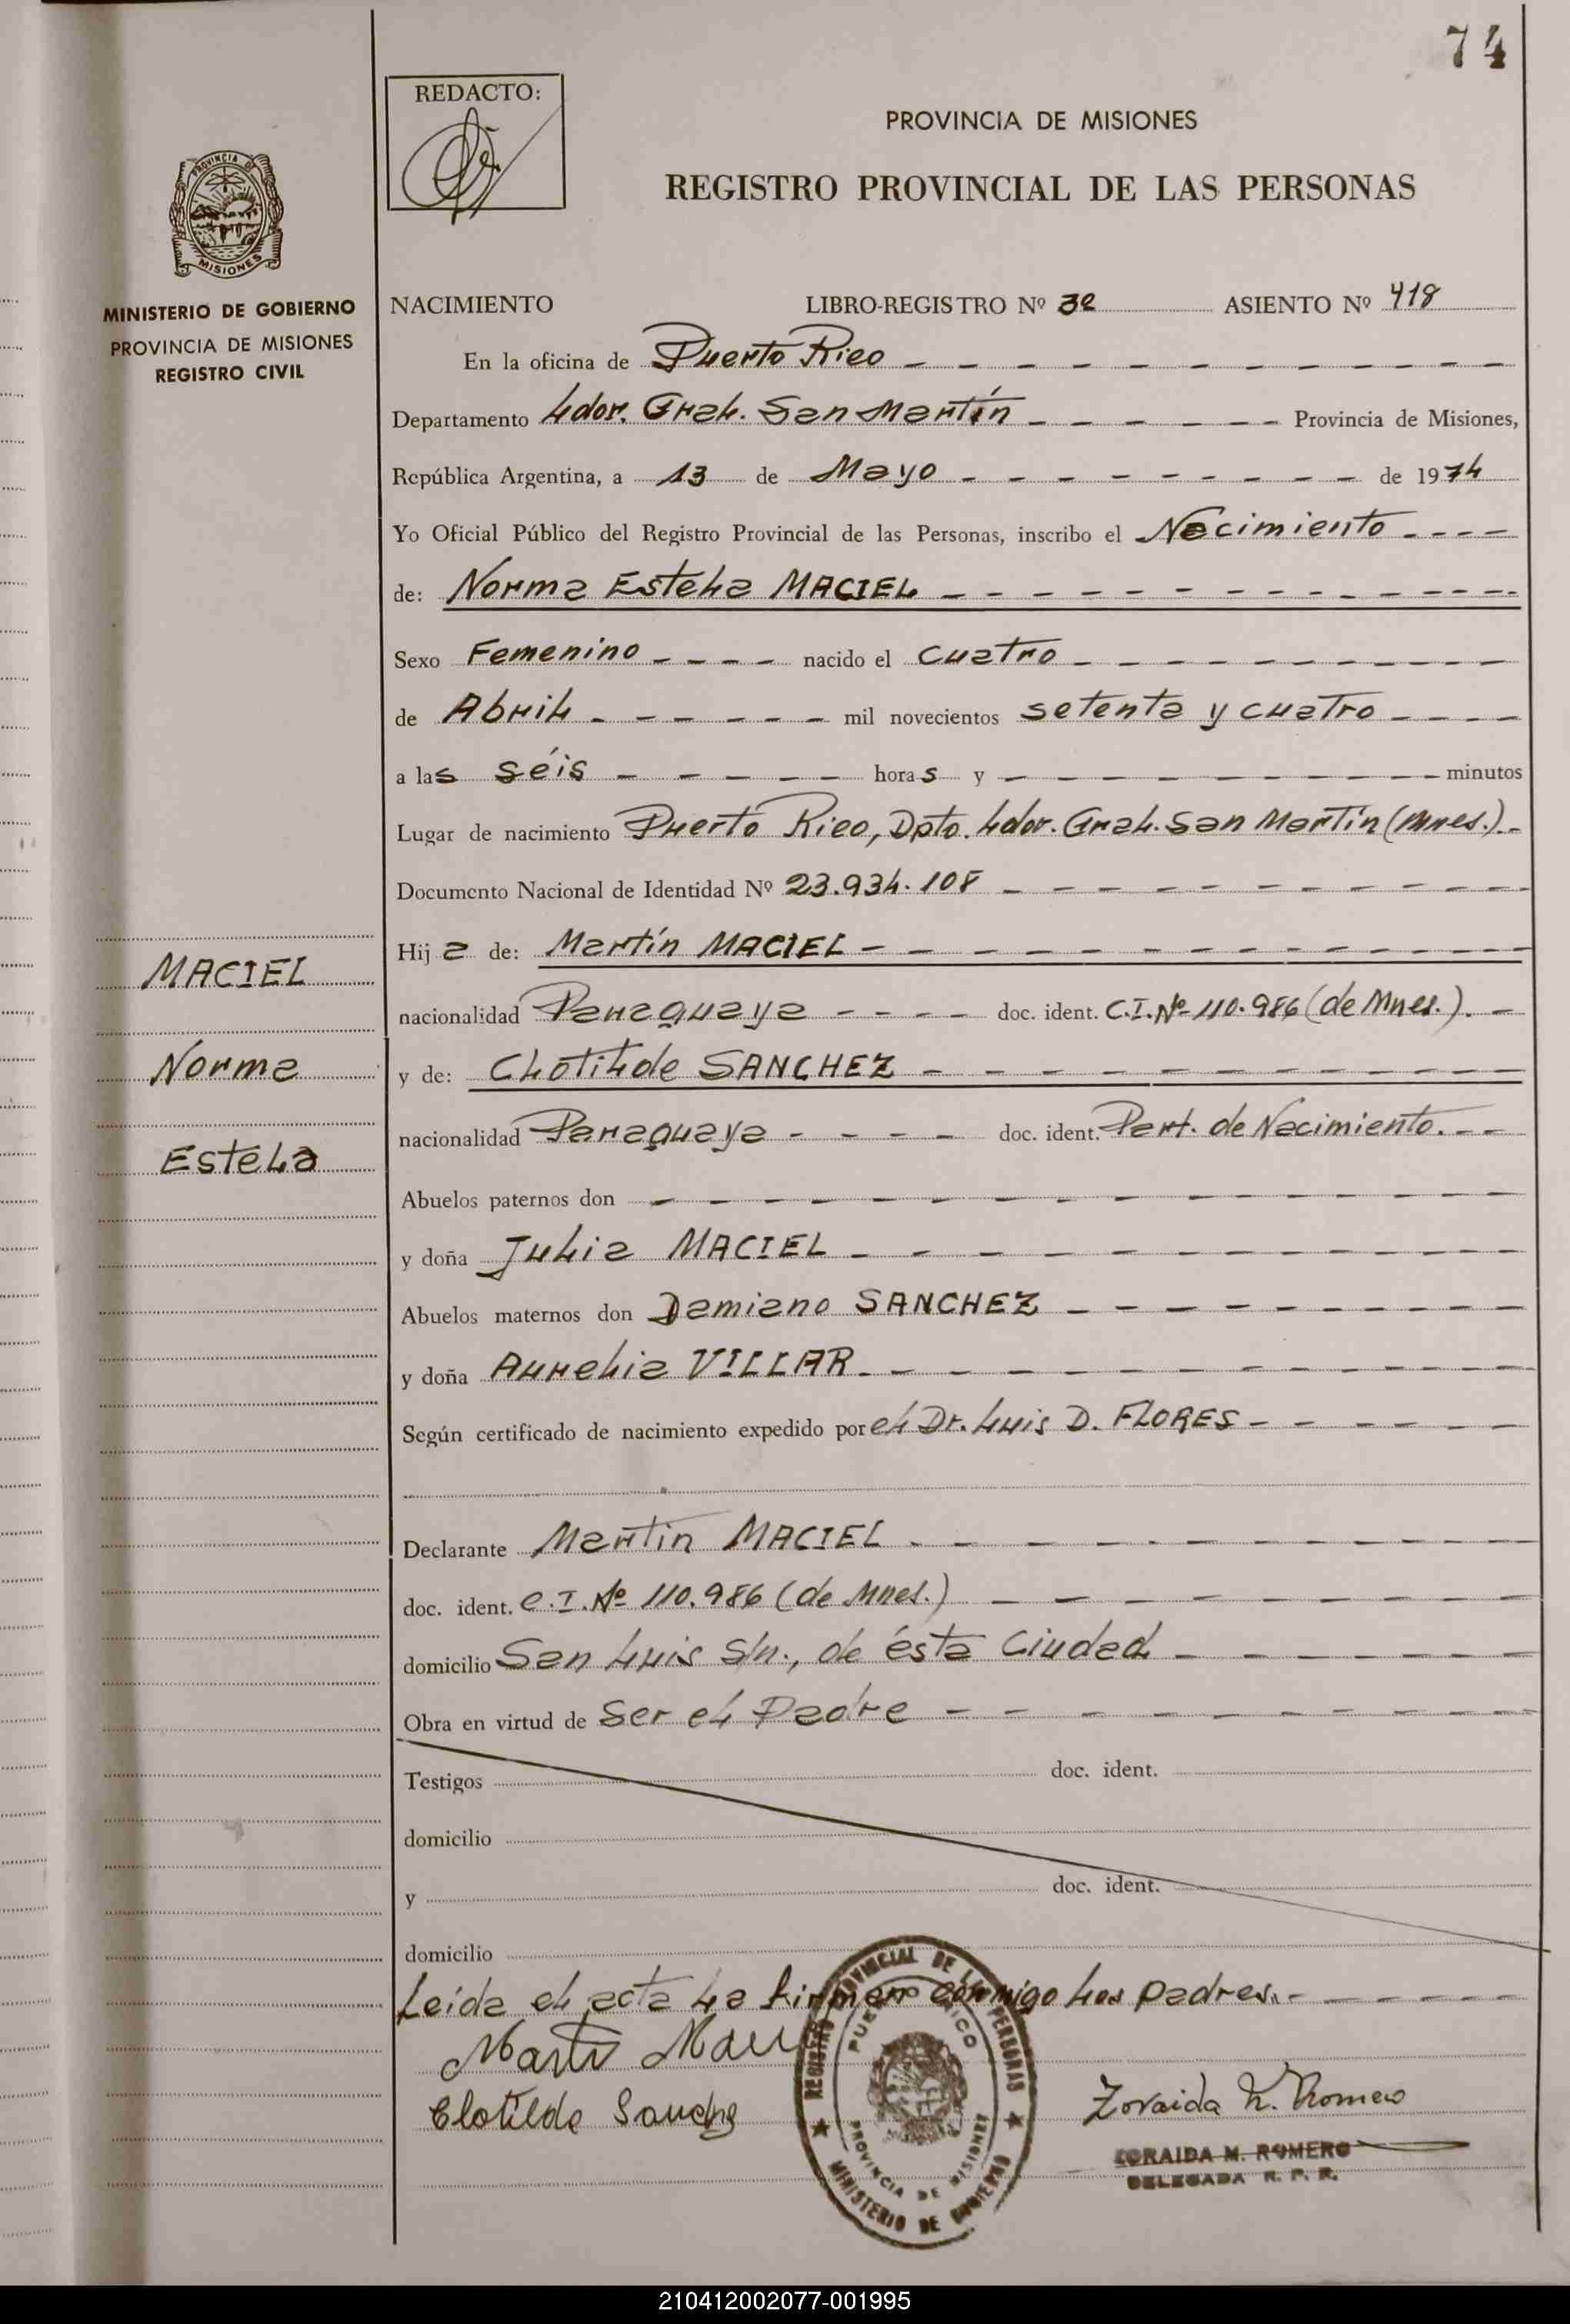 74
REDACTO:
PROVINCIA DE MISIONES
REGISTRO PROVINCIAL DE LAS PERSONAS
PROVINCIA DE
MISIONES
MINISTERIO DE GOBIERNO
PROVINCIA DE MISIONES
REGISTRO CIVIL
NACIMIENTO LIBRO-REGISTRO Nº 32 ASIENTO Nº 418
En la oficina de Puerto Rico
Departamento Ldor. Gral. San Martín Provincia de Misiones,
República Argentina, a 13 de Mayo de 1974
Yo Oficial Público del Registro Provincial de las Personas, inscribo el Nacimiento
de: Norma Estela MACIEL
Sexo Femenino nacido el cuatro
de Abril mil novecientos setenta y cuatro
a las séis horas y minutos
Lugar de nacimiento Puerto Rico, Dpto. Ldor. Gral. San Martín (Mnes.).
Documento Nacional de Identidad Nº 23.934.108
Hija de: Martín MACIEL
MACIEL
nacionalidad Paraguaya doc. ident. C.I. Nº 110.986 (de Mnes.).
Norma
y de: Clotilde SANCHEZ
nacionalidad Paraguaya doc. ident. Part. de Nacimiento.
Estela
Abuelos paternos don
y doña Julia MACIEL
Abuelos maternos don Damiano SANCHEZ
y doña Aurelia VILLAR
Según certificado de nacimiento expedido por el Dr. Luis D. FLORES
Declarante Martín MACIEL
doc. ident. C.I. Nº 110.986 (de Mnes.)
domicilio San Luis S/n., de ésta Ciudad
Obra en virtud de ser el Padre
Testigos doc. ident.
domicilio
y doc. ident.
domicilio
Leída el acta la firman conmigo los padres.
Clotilde Sanchez
REGISTRO PROVINCIAL DE LAS PERSONAS
PUERTO RICO
PROVINCIA DE MISIONES
MINISTERIO DE GOBIERNO
Zoraida M. Romero
ZORAIDA M. ROMERO
DELEGADA R. P. P.
210412002077-001995